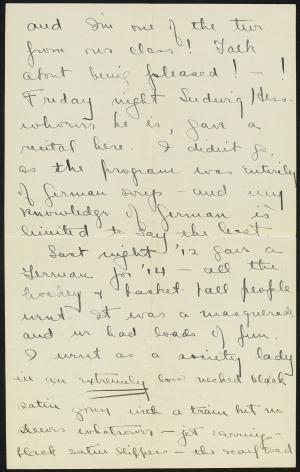 and I'm one of the two
from our class! Talk
about being pleased! — !
Friday night Ludwig Hess
whoever he is, gave a
recital here. I didn't go,
as the program was entirely
of German songs — and my
knowledge of German is
limited to say the least.
Last night '12 gave a
German for '14 — all the
hockey & basket ball people
went. It was a masquerade
and we had loads of fun.
I went as a society lady
in an extremely low necked black
satin gown with a train but no
sleeves whatsoever — jet earrings —
black satin slippers — the scarf Dad